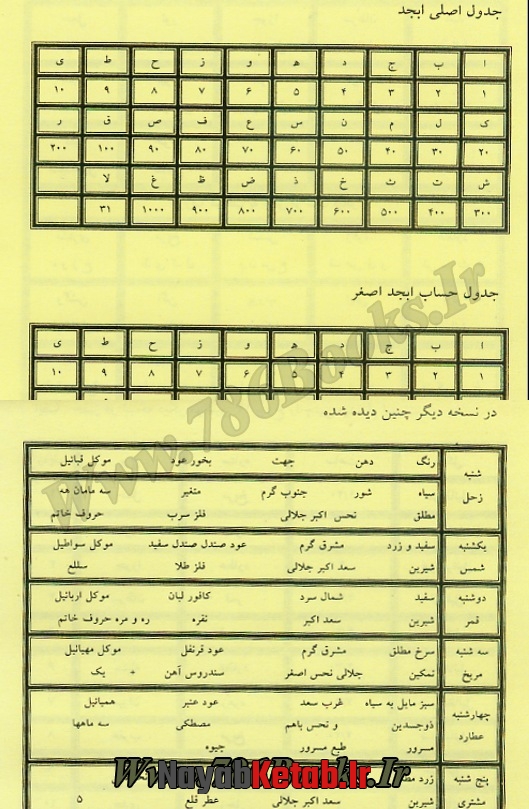 جدول اصلی ابجد
ا ب ج د ه و ز ح ط ی
۱ ۲ ۳ ۴ ۵ ۶ ۷ ۸ ۹ ۱۰
ک ل م ن س ع ف ص ق ر
۲۰ ۳۰ ۴۰ ۵۰ ۶۰ ۷۰ ۸۰ ۹۰ ۱۰۰ ۲۰۰
ش ت ث خ ذ ض ظ غ لا
۳۰۰ ۴۰۰ ۵۰۰ ۶۰۰ ۷۰۰ ۸۰۰ ۹۰۰ ۱۰۰۰ ۳۱
جدول حساب ابجد اصغر
ا ب ج د ه و ز ح ط ی
۱ ۲ ۳ ۴ ۵ ۶ ۷ ۸ ۹ ۱۰
در نسخه دیگر چنین دیده شده
شنبه رنگ دهن جهت بخور عود موکل قبائیل
زحل سیاه شور جنوب گرم متغیر سه مامان هه
مطلق نحس اکبر جلالی فلز سرب حروف خاتم
یکشنبه سفید و زرد مشرق گرم عود صندل صندل سفید موکل سواطیل
شمس شیرین سعد اکبر جلالی فلز طلا سللع
دوشنبه سفید شمال سرد کافور لبان موکل اربائیل
قمر شیرین سعد اکبر نقره ره و مره حروف خاتم
سه شنبه سرخ مطلق مشرق گرم عود قرنفل موکل مهیائیل
مریخ نمکین جلالی نحس اصغر سندروس آهن + یک
چهارشنبه سبز مایل به سیاه غرب سعد عود عنبر همیائیل
عطارد ذوجسدین و نحس باهم مصطکی سه ماهها
مسرور طبع مسرور جیوه
پنج شنبه زرد
مشتری شیرین سعد اکبر جلالی عطر قلع ۵
www.786Books.Ir
Www.786Books.Ir
NayabKetab.Ir